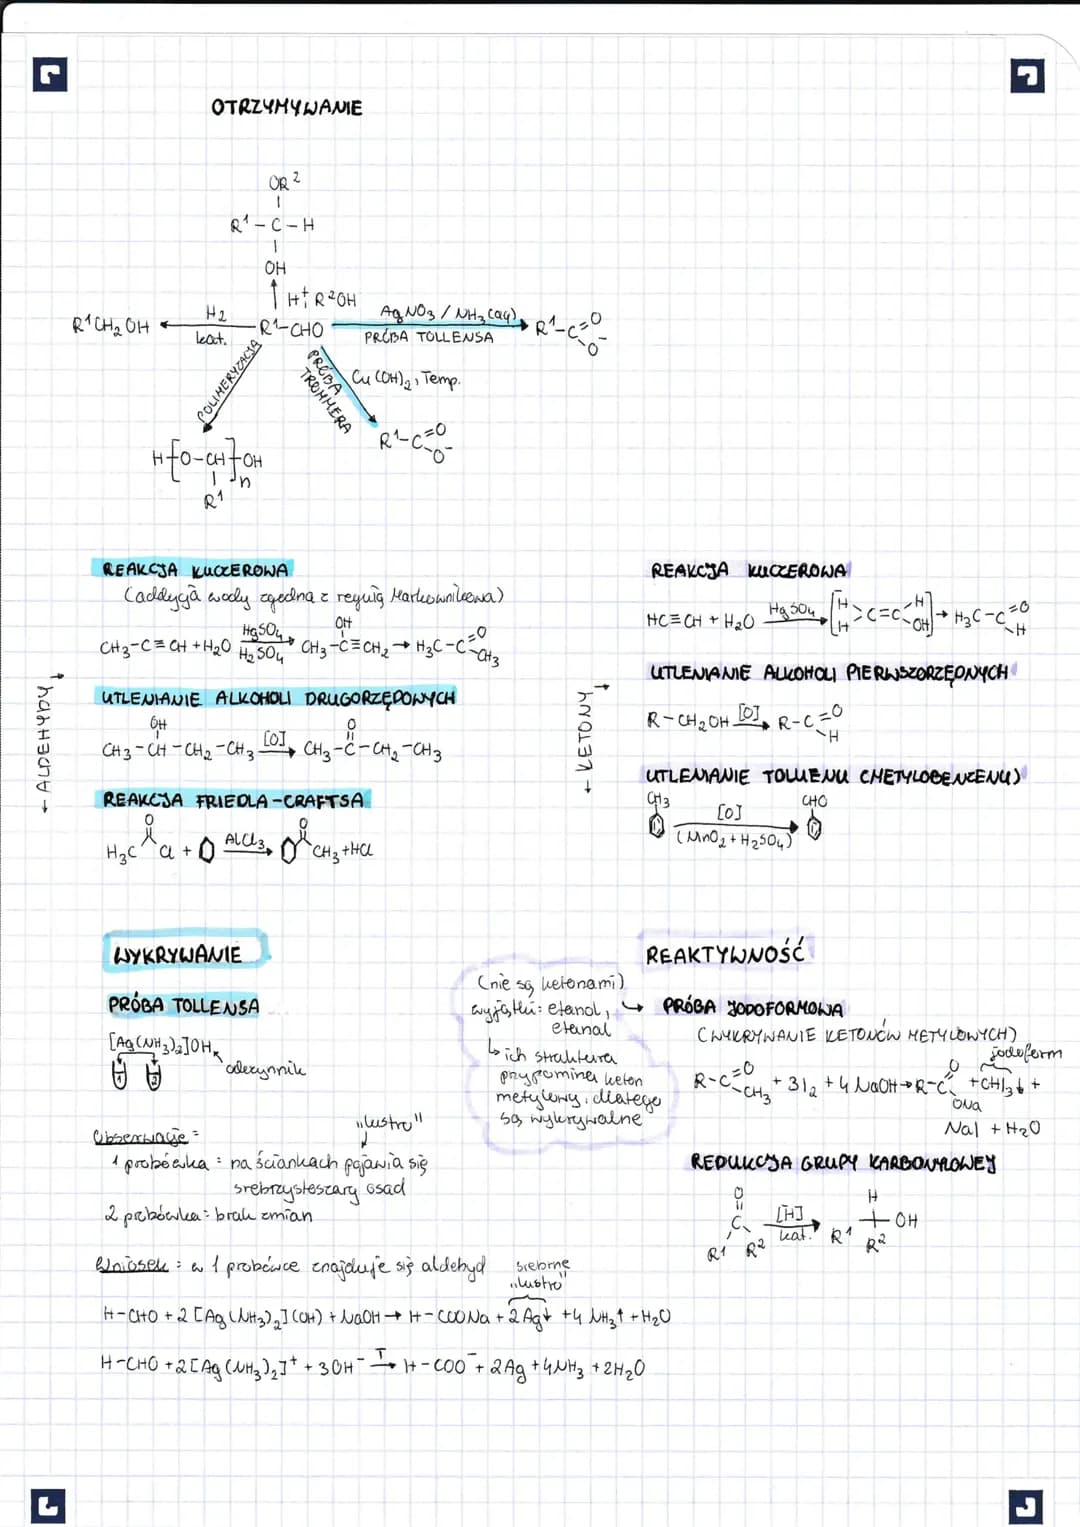 OTRZYMYWANIE
OR²
|
R¹ - C - H
|
OH
↑ H⁺, R²OH
R¹CH₂OH ← H₂ kat. R¹-CHO AgNO₃ / NH₃(aq) PRÓBA TOLLENSA → R¹-C=O O⁻
POLIMERYZACJA
PRÓBA TROMMERA
Cu(OH)₂, Temp.
R¹-C=O O⁻
H-[O-CH]-OH
n
R¹
← ALDEHYDY →
REAKCJA KUCZEROWA
(addycja wody zgodna z regułą Markownikowa)
CH₃-C≡CH + H₂O HgSO₄ H₂SO₄ → CH₃-C=CH₂ OH → H₃C-C=O CH₃
UTLENIANIE ALKOHOLI DRUGORZĘDOWYCH
OH O
CH₃-CH-CH₂-CH₃ [O]→ CH₃-C-CH₂-CH₃
REAKCJA FRIEDLA-CRAFTSA
O O
H₃C Cl + AlCl₃→ CH₃ + HCl
← KETONY →
REAKCJA KUCZEROWA
HC≡CH + H₂O HgSO₄→ [H H >C=C< H OH] → H₃C-C=O H
UTLENIANIE ALKOHOLI PIERWSZORZĘDNYCH
R-CH₂OH [O]→ R-C=O H
UTLENIANIE TOLUENU (METYLOBENZENU)
CH₃ [O] CHO
(MnO₂ + H₂SO₄)
WYKRYWANIE
PRÓBA TOLLENSA
[Ag(NH₃)₂]OH
odczynnik
1 2
"lustro"
Obserwacje:
1 probówka: na ściankach pojawia się
srebrzystoszary osad
2 probówka: brak zmian
Wniosek: w 1 probówce znajduje się aldehyd
srebrne
"lustro"
H-CHO + 2 [Ag(NH₃)₂](OH) + NaOH → H-COONa + 2Ag↓ + 4NH₃↑ + H₂O
H-CHO + 2[Ag(NH₃)₂]⁺ + 3OH⁻ T→ H-COO⁻ + 2Ag + 4NH₃ + 2H₂O
(nie są ketonami)
wyjątki: etanol,
etanal
↳ ich struktura
przypomina keton
metylowy, dlatego
są wykrywalne
REAKTYWNOŚĆ
↪ PRÓBA JODOFORMOWA
(WYKRYWANIE KETONÓW METYLOWYCH)
jodoform
R-C=O CH₃ + 3I₂ + 4NaOH → R-C O ONa + CHI₃↓ +
NaI + H₂O
REDUKCJA GRUPY KARBONYLOWEJ
O H
C [H] kat.→ OH
R¹ R² R¹ R²